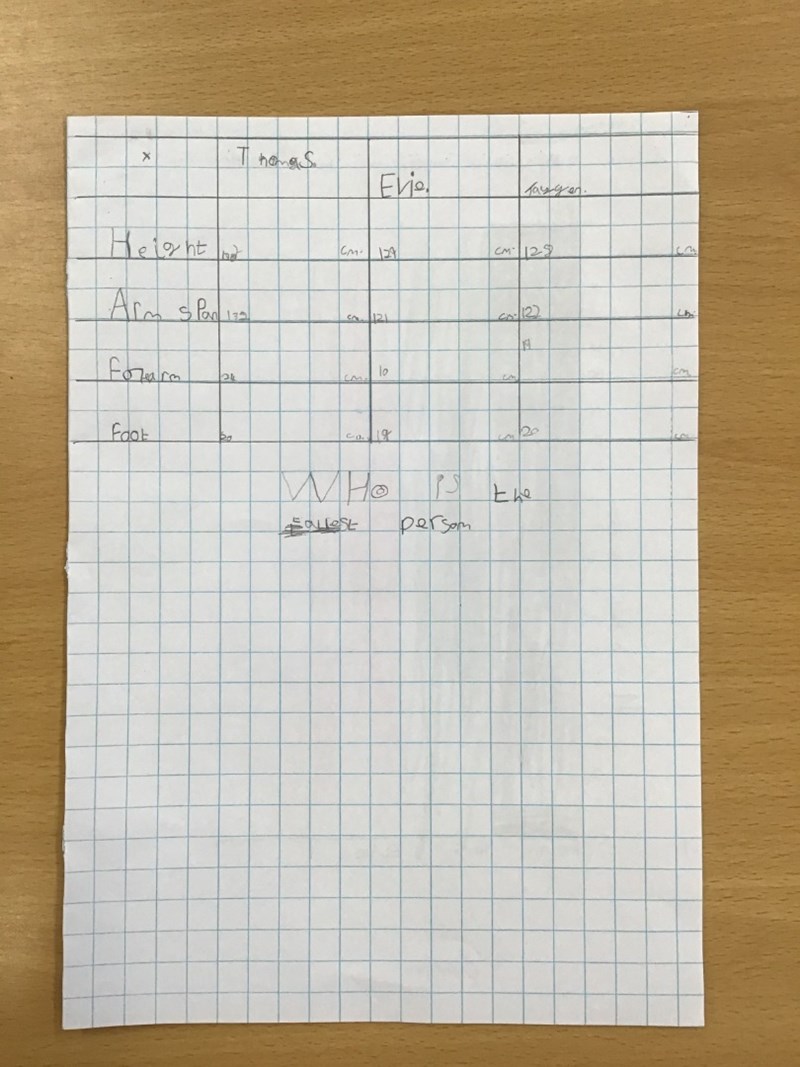 x Thomas.
Evie.
Height cm. 129 cm. 128 cm
Arm span cm 121 cm. 122 cm
Forearm cm. 10 cm cm
Foot 20 cm 18 cm 20 cm
WHO is the
tallest person